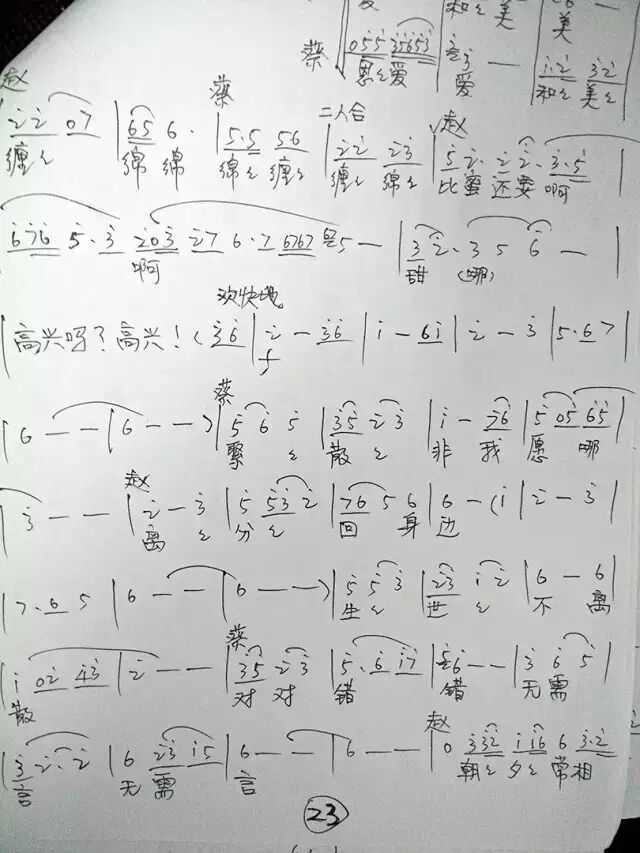 爱 和 美 美 —
蔡 055 35653 爱 — 12 32
恩 爱 和 美
赵 蔡 二人合 赵
| 22 07 | 65 6· | 5·5 56 | 22 23 | 5 2· 2 2· 3·5 |
缠 绵 绵 绵 缠 缠 绵 比蜜 还要 啊
676 5·3 203 27 6·7 6767 5 — | 3 2·3 5 6 — |
啊 甜 (哪)
欢快地
| 高兴吗? 高兴! ( 36 | 2 — 36 | 1 — 61 | 2 — 3 | 5·67 |
f
蔡
| 6 — — | 6 — — ) | 5 6 5 | 35 23 | 1 — 76 | 5 05 65 |
聚 散 非 我 愿 哪
赵
| 3 — — | 2 — 3 | 5 53 2 | 76 5 6 | 6 — (1 | 2 — 3 |
离 分 回 身 边
| 7·6 5 | 6 — — | 6 — — ) | 5 5 3 | 23 1 2 | 6 — 6 |
生 世 不 离
蔡
| 1 02 43 | 2 — — | 35 23 | 5·6 17 | 6 — — | 3 6 5 |
散 对 对 错 错 无需
赵
| 3 2·2 | 6 23 15 | 6 — — | 6 — — | 0 332 116 6 3·2
言 无 需 言 朝 夕 常相
23